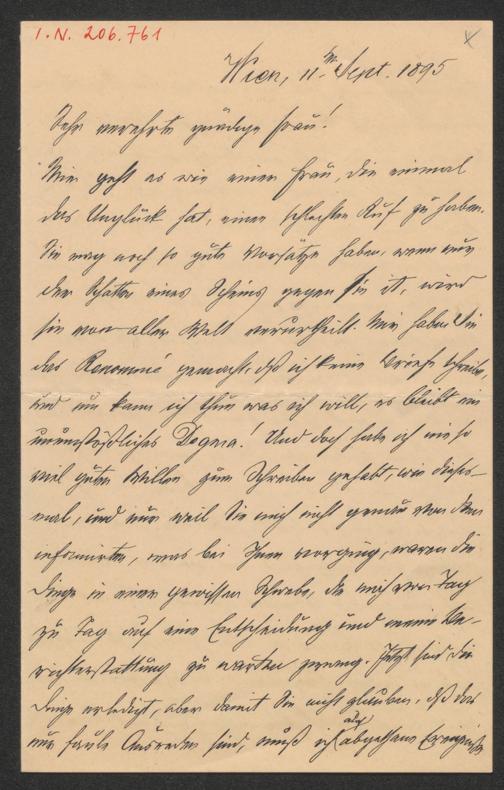 I. N. 206.761
Wien, 11ten Sept. 1895
Sehr verehrte gnädige Frau!
Mir geht es wie einer Frau, die einmal
das Unglück hat, einen schlechten Ruf zu haben.
Sie mag noch so gute Vorsätze haben, wenn nur
der Schatten eines Scheins gegen sie ist, wird
sie von aller Welt verurtheilt. Mir haben Sie
das Renommé gemacht, daß ich keine Briefe schreibe,
und nun kann ich thun was ich will, es bleibt ein
unumstößliches Dogma! Und doch habe ich nie so
viel guten Willen zum Schreiben gehabt, wie dieses-
mal, und nur weil Sie mich nicht genau von dem
informirten, was bei Ihnen vorging, waren die
Dinge in einer gewissen Schwebe, die mich von Tag
zu Tag auf eine Entscheidung und meine Be-
richterstattung zu warten zwang. Jetzt sind die
Dinge erledigt, aber damit Sie nicht glauben, daß das
nur faule Ausreden sind, muß ich auf abgethane Ereignisse